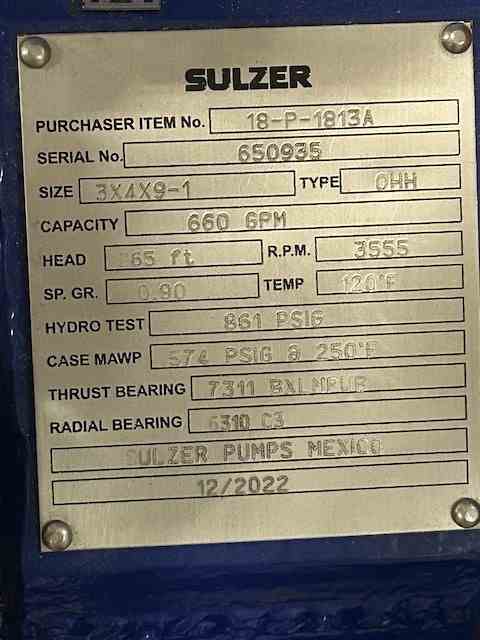 SULZER
PURCHASER ITEM No. 18-P-1813A
SERIAL No. 650935
SIZE 3X4X9-1 TYPE OHH
CAPACITY 660 GPM
HEAD ft R.P.M. 3555
SP. GR. 0.90 TEMP 120°F
HYDRO TEST 861 PSIG
CASE MAWP 574 PSIG @ 250°F
THRUST BEARING 7311
RADIAL BEARING 6310 C3
SULZER PUMPS MEXICO
12/2022